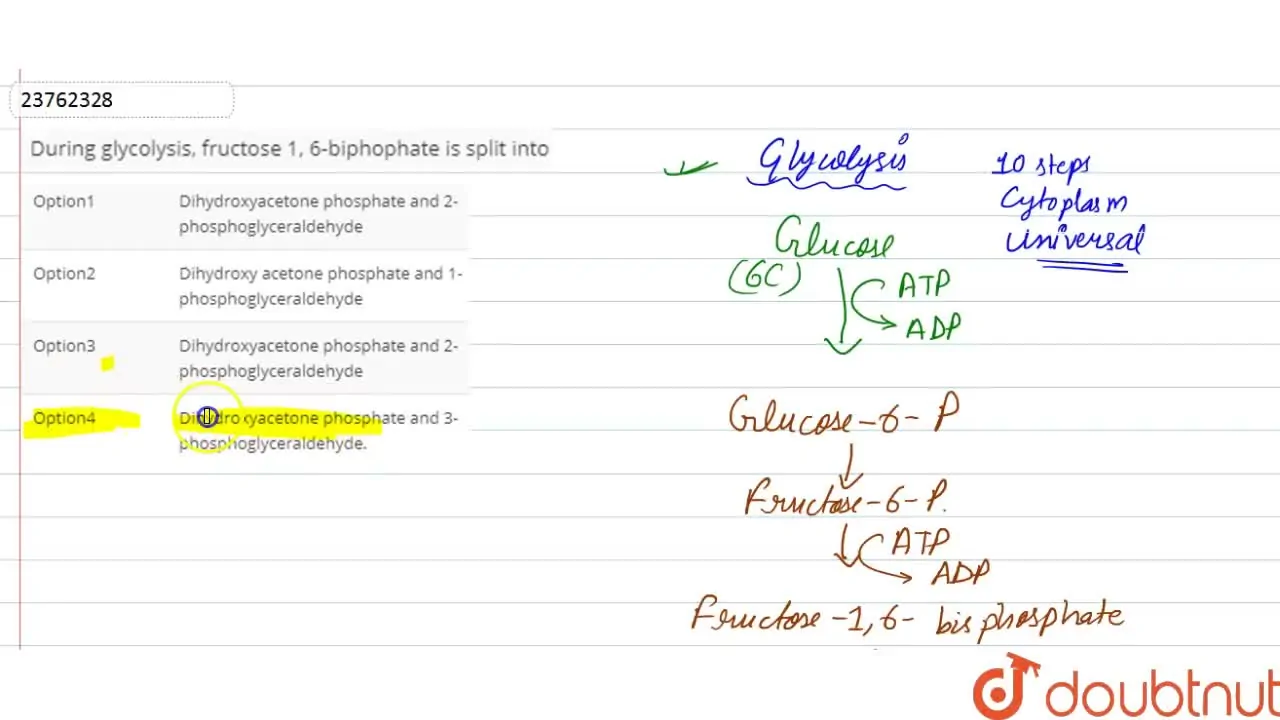 23762328
During glycolysis, fructose 1, 6-biphophate is split into
Option1 Dihydroxyacetone phosphate and 2-
phosphoglyceraldehyde
Option2 Dihydroxy acetone phosphate and 1-
phosphoglyceraldehyde
Option3 Dihydroxyacetone phosphate and 2-
phosphoglyceraldehyde
Option4 Dihydroxyacetone phosphate and 3-
phosphoglyceraldehyde.
Glycolysis
10 steps
Cytoplasm
Universal
Glucose
(6C)
ATP
ADP
Glucose-6-P
Fructose-6-P.
ATP
ADP
Fructose-1,6- bisphosphate
doubtnut